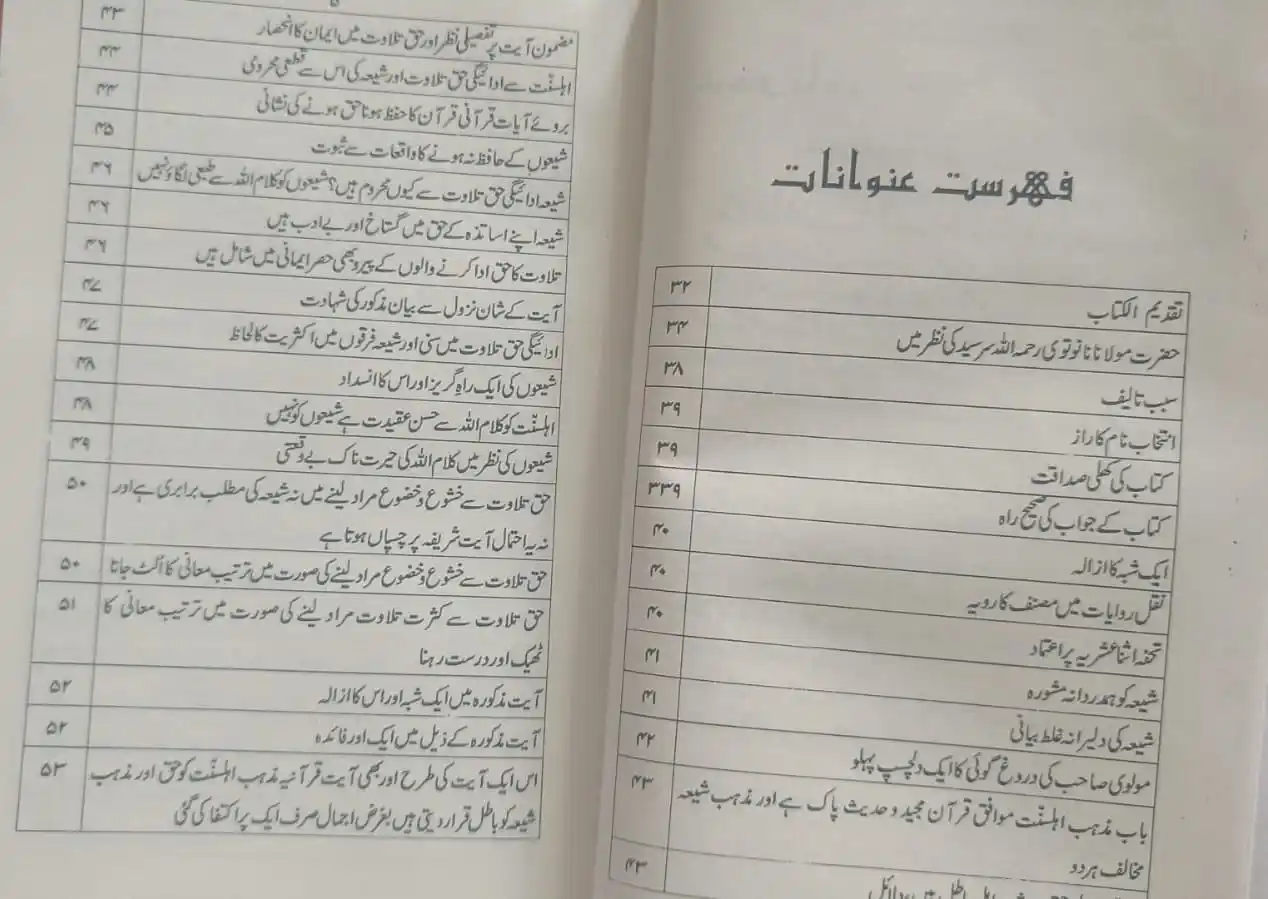 فہرست عنوانات
تقدیم الکتاب ۳۲
حضرت مولانا نانوتوی رحمہ اللہ سرسید کی نظر میں ۳۴
سبب تالیف ۳۸
انتخاب نام کا راز ۳۹
کتاب کی کھلی صداقت ۳۹
کتاب کے جواب کی صحیح راہ ۳۳۹
ایک شبہ کا ازالہ ۴۰
نقل روایات میں مصنف کا رویہ ۴۰
تحفہ اثنا عشریہ پر اعتماد ۴۰
شیعہ کو ہمدردانہ مشورہ ۴۱
شیعہ کی دلیرانہ غلط بیانی ۴۱
مولوی صاحب کی دروغ گوئی کا ایک دلچسپ پہلو ۴۲
باب مذہب اہلسنّت موافق قرآن مجید و حدیث پاک ہے اور مذہب شیعہ ۴۳
مخالف ہر دو
۴۳
۵
مضمون آیت پر تفصیلی نظر اور حق تلاوت میں ایمان کا انحصار ۴۳
اہلسنّت سے ادائیگی حق تلاوت اور شیعہ کی اس سے قطعی محرومی ۴۴
بروئے آیات قرآنی قرآن کا حفظ ہونا حق ہونے کی نشانی ۴۴
شیعوں کے حافظ نہ ہونے کا واقعات سے ثبوت ۴۵
شیعہ ادائیگی حق تلاوت سے کیوں محروم ہیں؟ شیعوں کو کلام اللہ سے طبعی لگاؤ نہیں ۴۶
شیعہ اپنے اساتذہ کے حق میں گستاخ اور بے ادب ہیں ۴۶
تلاوت کا حق ادا کرنے والوں کے پیرو بھی حصر ایمانی میں شامل ہیں ۴۶
آیت کے شان نزول سے بیان مذکور کی شہادت ۴۷
ادائیگی حق تلاوت میں سنی اور شیعہ فرقوں میں اکثریت کا لحاظ ۴۷
شیعوں کی ایک راہِ گریز اور اس کا انسداد ۴۸
اہلسنّت کو کلام اللہ سے حسن عقیدت ہے شیعوں کو نہیں ۴۸
شیعوں کی نظر میں کلام اللہ کی حیرت ناک بے وقعتی ۴۹
حق تلاوت سے خشوع و خضوع مراد لینے میں نہ شیعہ کی مطلب برابری ہے اور ۵۰
نہ یہ احتمال آیت شریفہ پر چسپاں ہوتا ہے
حق تلاوت سے خشوع و خضوع مراد لینے کی صورت میں ترتیب معانی کا الٹ جانا ۵۰
حق تلاوت سے کثرت تلاوت مراد لینے کی صورت میں ترتیب معانی کا ۵۱
ٹھیک اور درست رہنا
آیت مذکورہ میں ایک شبہ اور اس کا ازالہ ۵۲
آیت مذکورہ کے ذیل میں ایک اور فائدہ ۵۲
اس ایک آیت کی طرح اور بھی آیت قرآنیہ مذہب اہلسنّت کو حق اور مذہب ۵۳
شیعہ کو باطل قرار دیتی ہیں بغرض اجمال صرف ایک پر اکتفا کی گئی